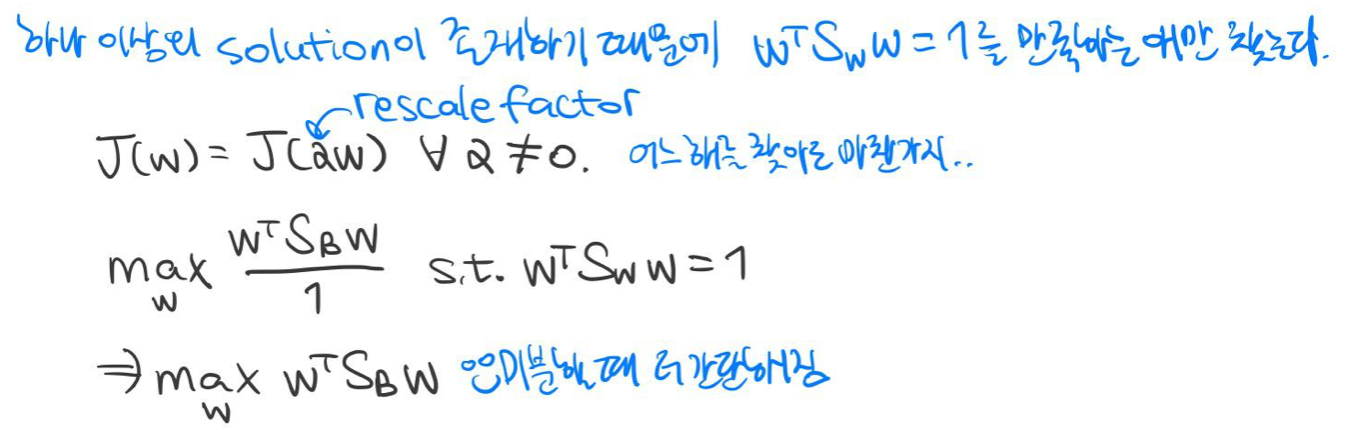 하나 이상의 solution이 존재하기 때문에 wᵀS_w w = 1을 만족하는 애만 찾는다.
rescale factor
J(w) = J(αw) ∀ α ≠ 0. 어느 해를 찾아도 마찬가지..
max_w wᵀS_B w / 1 s.t. wᵀS_w w = 1
⇒ max_w wᵀS_B w 미분할 때 더 간단해짐